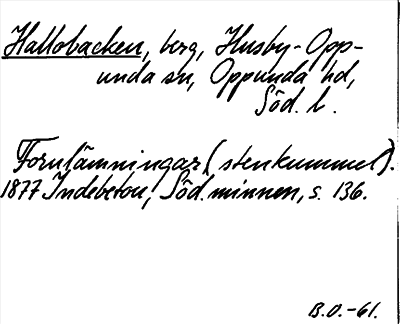 Hallobacken, berg, Husby-Opp-
unda sn, Oppunda hd,
Söd. l.
Fornlämningar (stenkummel).
1877 Indebetou, Söd. minnen, s. 136.
B.O.-61.